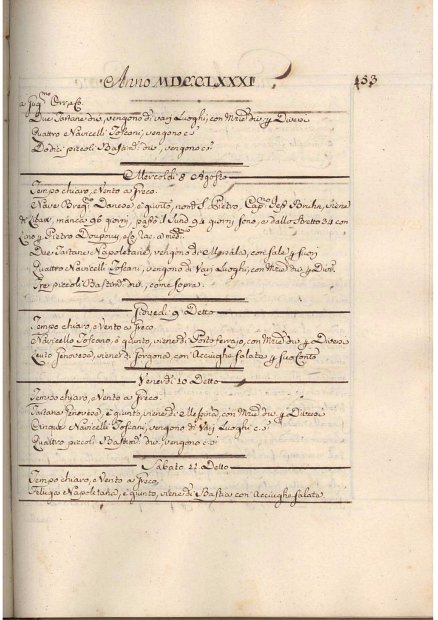 Anno MDCCLXXXI
453
Due Tartane div, vengono di varj Luoghi, con Mzie div, y Diversi
Quattro Navicelli Toscani, vengono c s
Dodici piccoli Bastim. div, vengono c s
Mercoldi 8 Agosto
Tempo chiaro, e Vento a Greco.
Nave Danese, è quinto, nom. S. Pietro, Cap. Bruhn, viene
di manca 96 giorni, passò il Sund 94 giorni sono, e dallo Stretto 34 con
y Pietro
Due Tartane Napoletane, vengono di con sale y fuori
Quattro Navicelli Toscani, vengono di Varj Luoghi, con Mzie div y Div
Tre piccoli Bastim. div, come sopra
Giovedi 9 Detto
Tempo chiaro, e Vento a Greco
Navicello Toscano, è quinto, viene di Porto ferrajo, con Mzie div y Diversi
Leuto Genovese, viene di Gorgona con Acciughe salate y suo Conto
Venerdi 10 Detto
Tempo chiaro, e Vento a Greco.
Tartana Genovese, è quinto, viene di Messina, con Mzie div y Diversi
Cinque Navicelli Toscani, vengono di Varj Luoghi c s
Quattro piccoli Bastim. div, vengono c s
Sabato 11 Detto
Tempo chiaro, e Vento a Greco,
Feluga Napoletana, è quinto, viene di Bastia con Acciughe salate